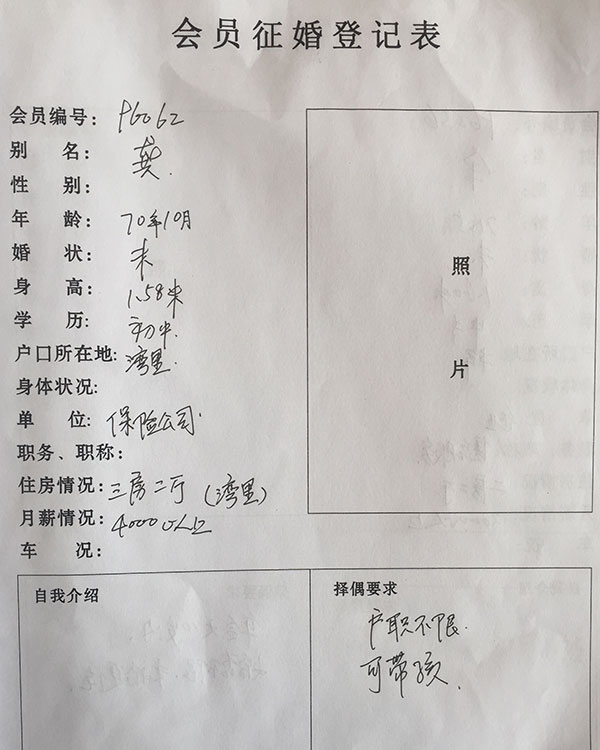 会员征婚登记表
会员编号：P6062
别 名：龚.
性 别：
年 龄：70年10月
婚 状：未
身 高：1.58米
学 历：初中.
户口所在地：湾里.
身体状况：
单 位：保险公司.
职务、职称：
住房情况：三房二厅（湾里）
月薪情况：4000以上
车 况：
照
片
自我介绍
择偶要求
户职不限.
可带孩.